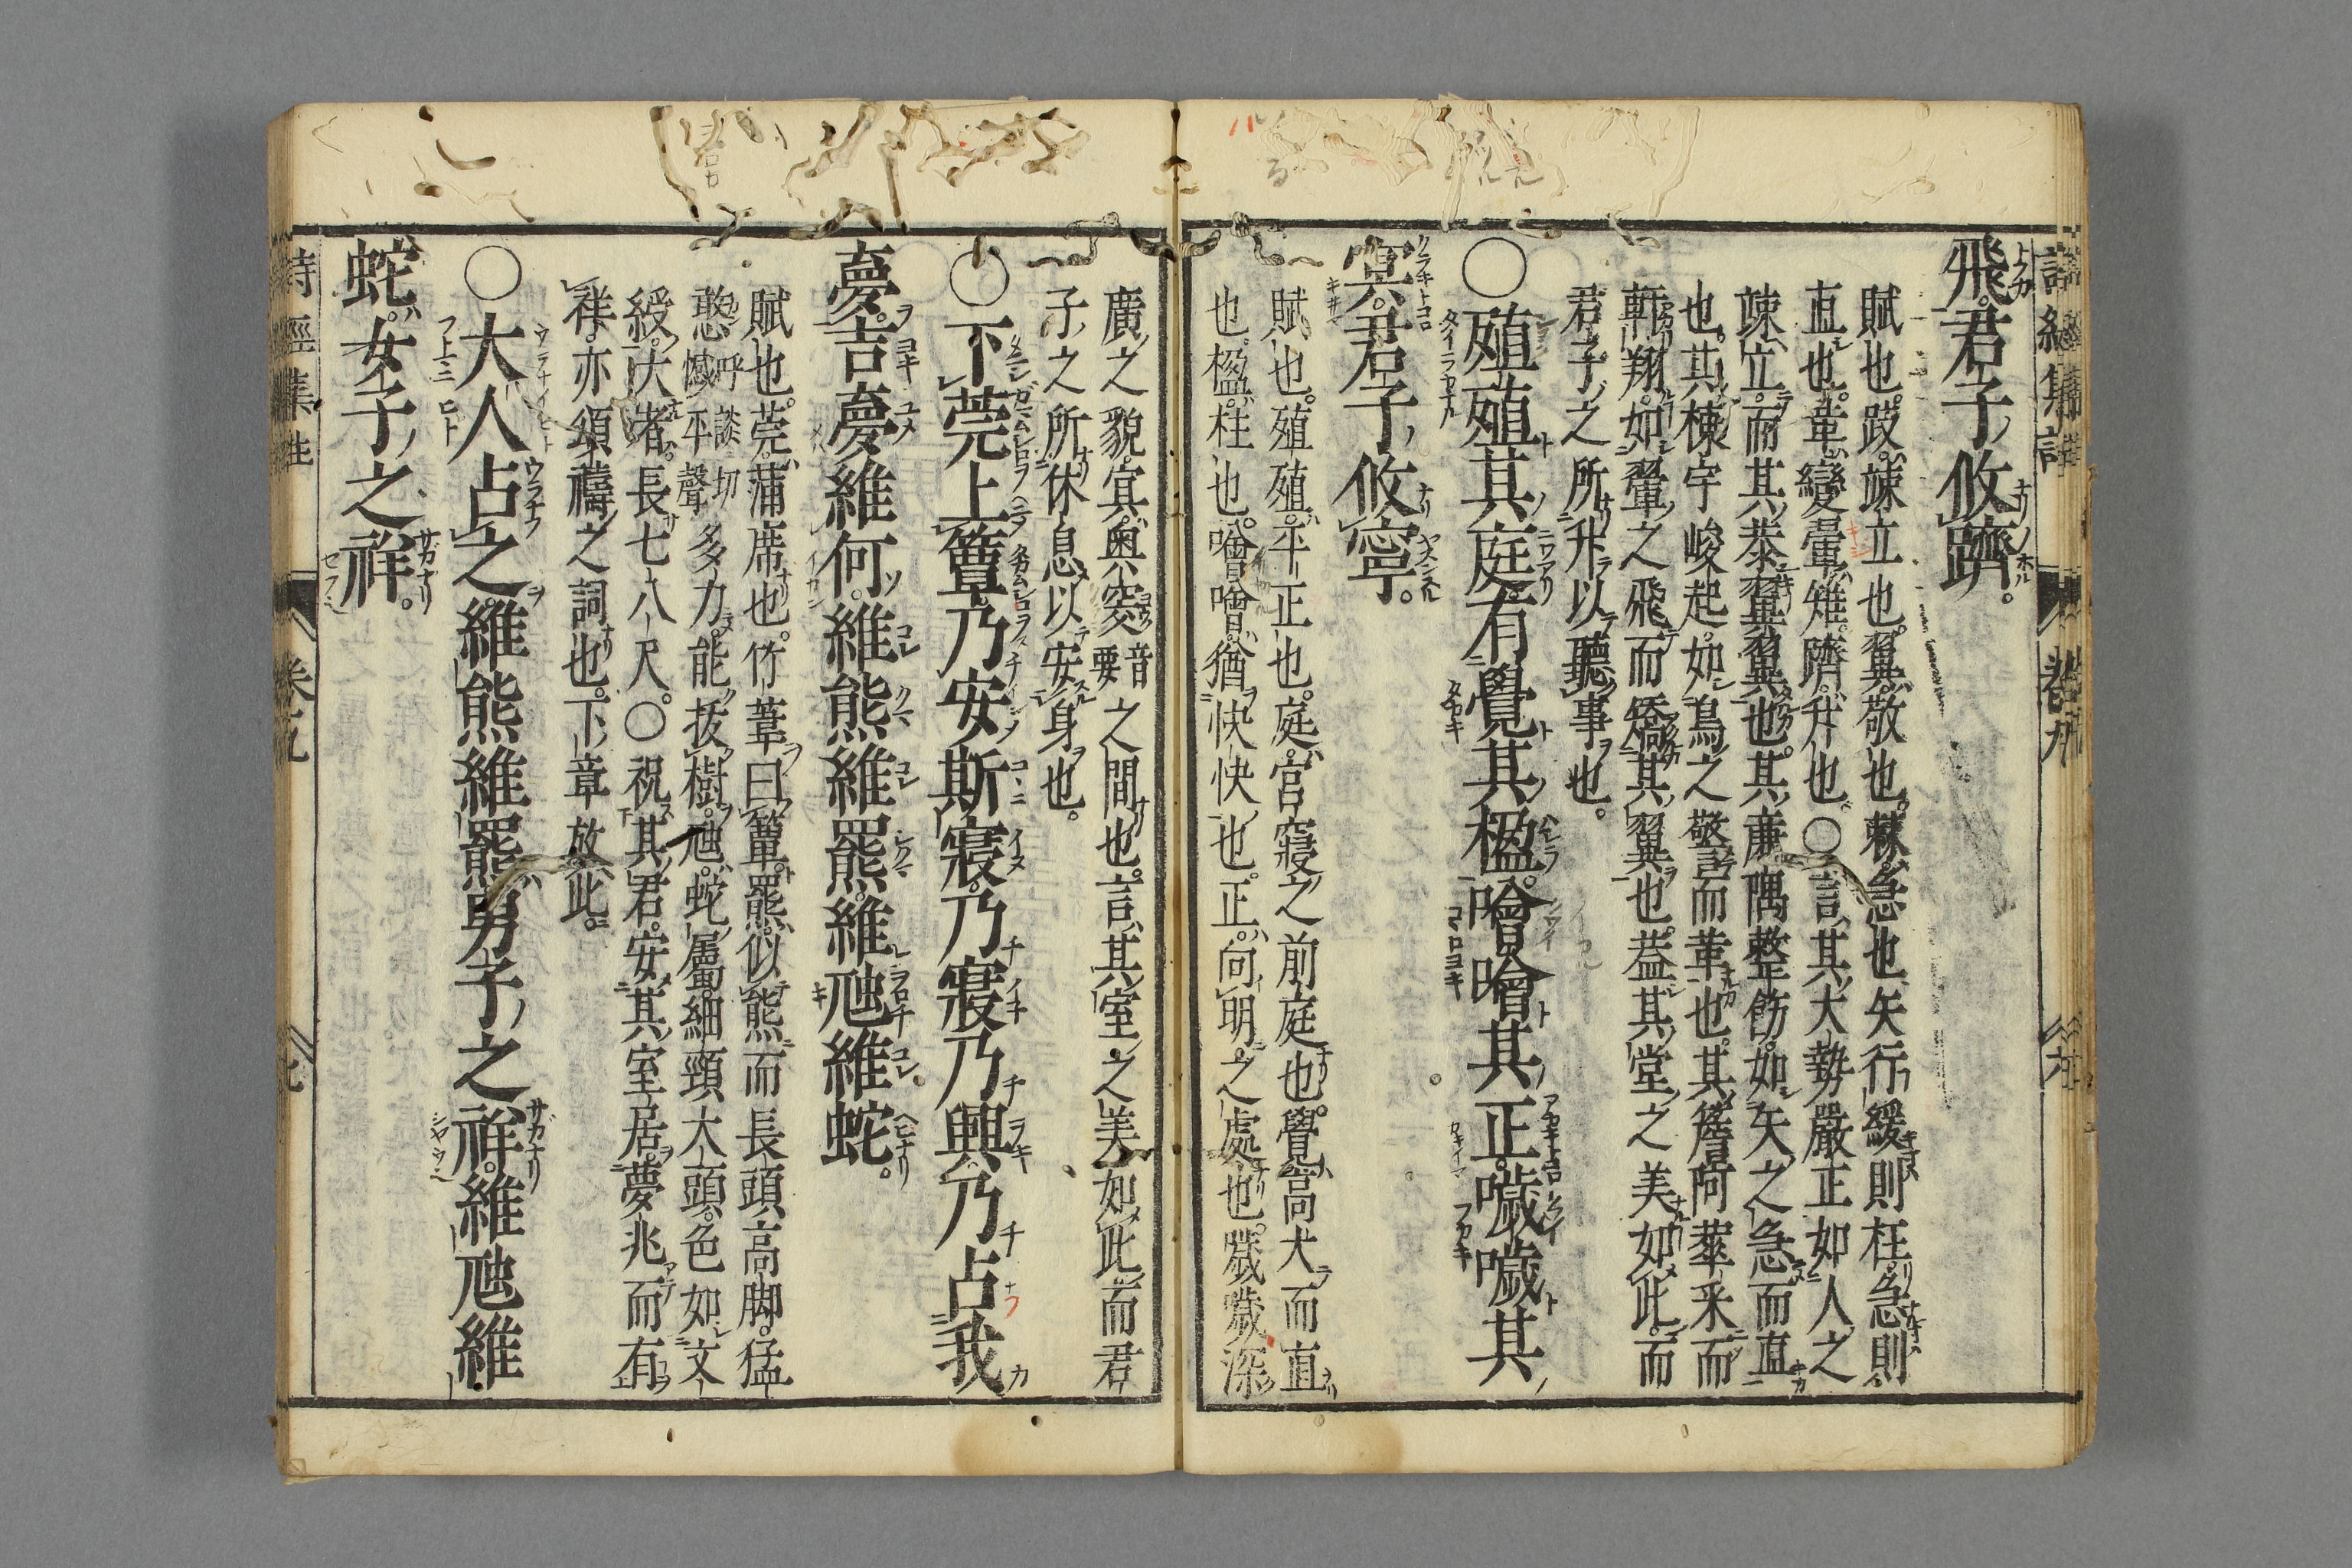 飛。君子攸躋。
賦也。跂。竦立也。翼。敬也。棘。急也。矢行緩則枉。急則
直也。革。變。翬。雉。躋。升也。○言其大勢嚴正。如人之
竦立。而其恭翼翼也。其廉隅整飭。如矢之急而直
也。其棟宇峻起。如鳥之警而革也。其簷阿華采而
軒翔。如翬之飛而矯其翼也。蓋其堂之美如此。而
君子之所升以聽事也。
○殖殖其庭。有覺其楹。噲噲其正。噦噦其
冥。君子攸寧。
賦也。殖殖。平正也。庭。宮寢之前庭也。覺。高大而直
也。楹。柱也。噲噲。猶快快也。正。向明之處也。噦噦。深
廣之貌。冥。奧窔音要之間也。言其室之美如此。而君
子之所休息以安身也。
○下莞上簟。乃安斯寢。乃寢乃興。乃占我
夢。吉夢維何。維熊維羆。維虺維蛇。
賦也。莞。蒲席也。竹葦曰簟。羆。似熊而長頭高脚。猛
憨呼談切憾平聲多力。能拔樹。虺。蛇屬。細頸大頭。色如文
綬。大者。長七八尺。○祝其君。安其室居。夢兆而有
祥。亦頌禱之詞也。下章放此。
○大人占之。維熊維羆。男子之祥。維虺維
蛇。女子之祥。
詩經集註 卷五 七